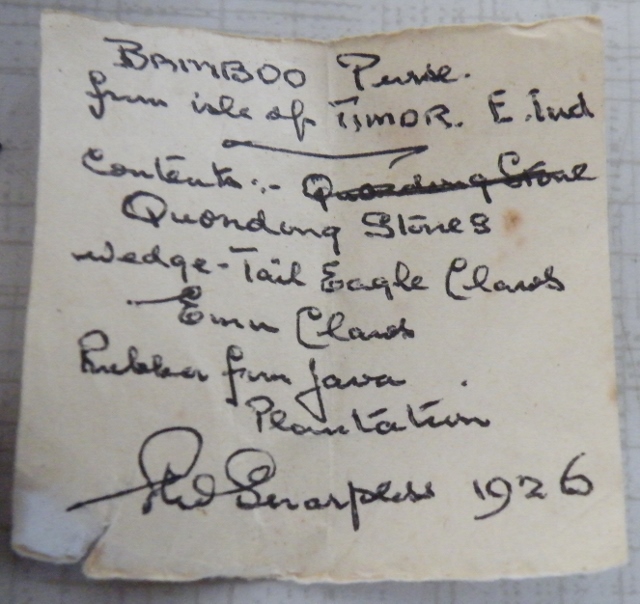 BAMBOO Purse.
from isle of TIMOR. E. Ind
Contents:- Quondong Stone
Quondong Stones
wedge-Tail Eagle Claws
Emu Claws
Rubber from Java
Plantation
Sharpless 1926